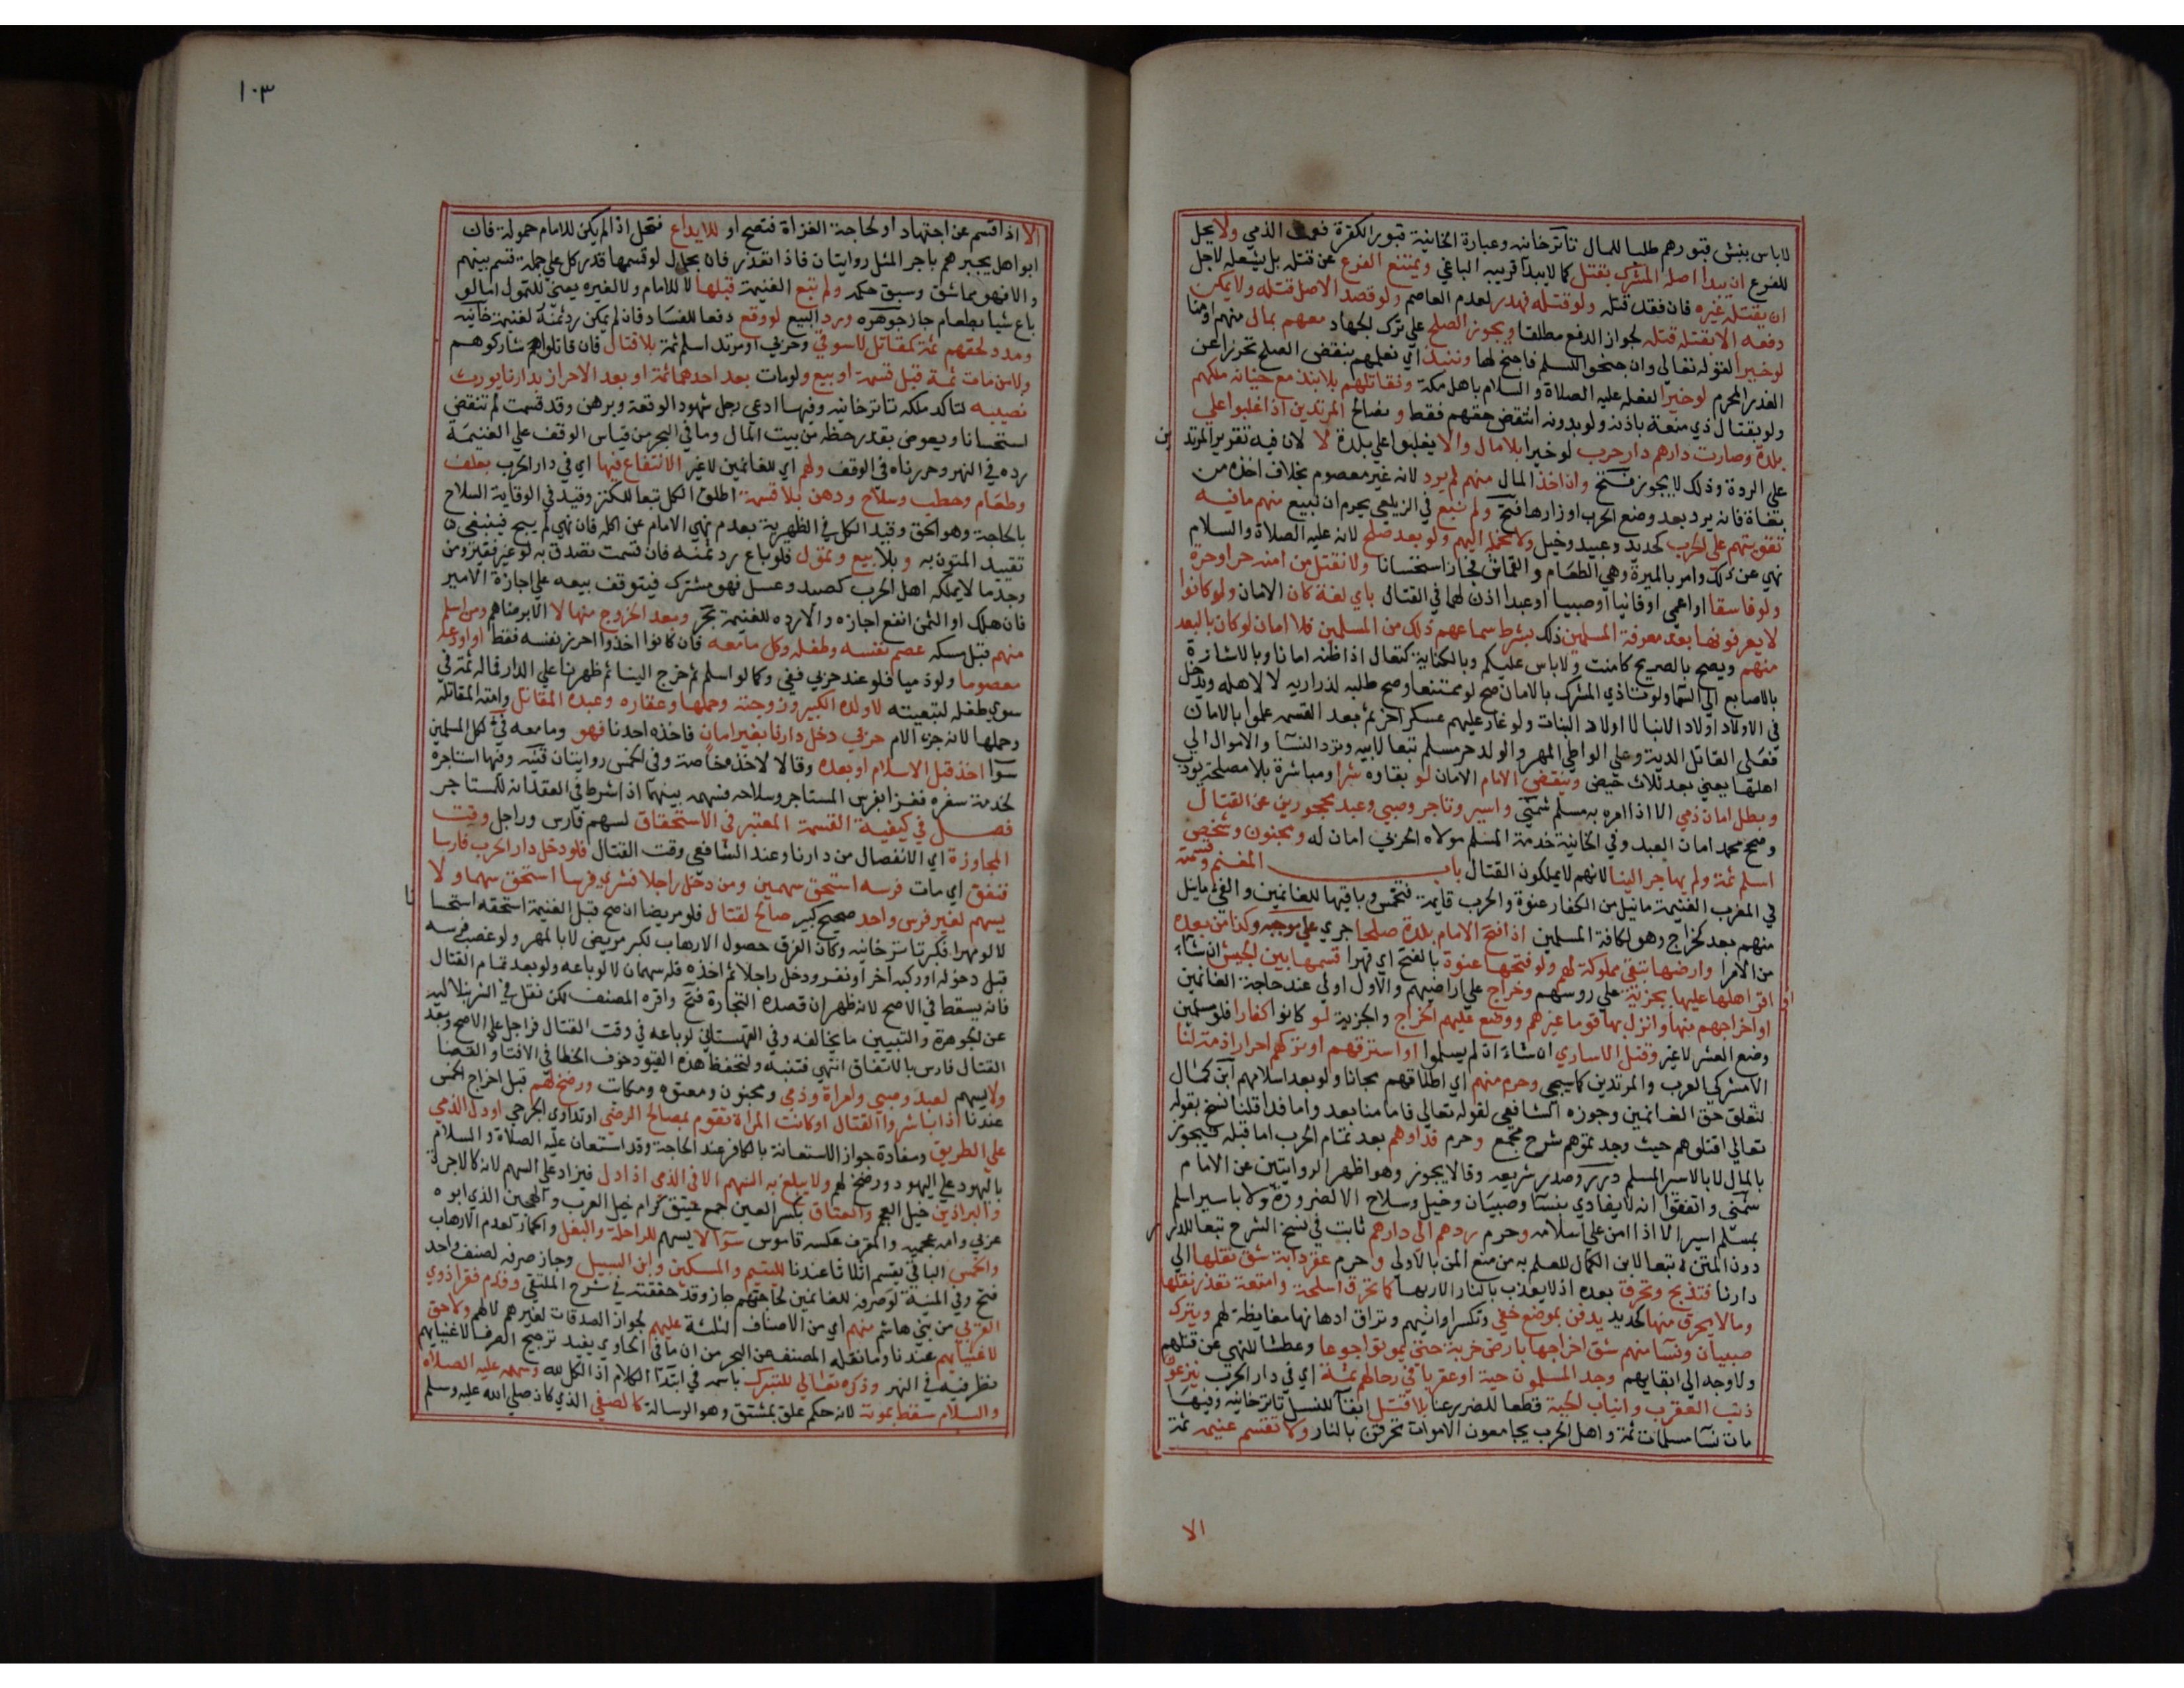 لاباس بنبش قبورهم طلبا للمال تاترخانيه وعبارة الخانية قبور الكفرة فعمت الذمي ولا يحل
للفرع ان يبدا اصله المشرك بقتل كما لا يبدا قريبه الباغي ويمتنع الفرع عن قتله بل يشغله لاجل
ان يقتله غيره فان فقد قتله ولو قتله فهدر لعدم العاصم ولو قصد الاصل قتله ولا يمكن
دفعه الا بقتله قتله لجواز الدفع مطلقا ويجوز الصلح علي ترك الجهاد معهم بمال منهم او منا
لو خيرا لقوله تعالي وان جنحوا للسلم فاجنح لها وننبذ اي نعلمهم بنقض الصلح تحرزا عن
الغدر المحرم لو خيرا لفعله عليه الصلاة والسلام باهل مكة ونقاتلهم بلا نبذ مع خيانة ملكهم
ولو بقتال ذي منعة باذنه ولو بدونه انتقض حقهم فقط و نصالح المرتدين اذا غلبوا علي
بلدة وصارت دارهم دار حرب لو خيرا بلا مال والا يغلبوا علي بلدة لا لان فيه تقرير المرتدين
علي الردة وذلك لا يجوز فتح وان اخذ المال منهم لم يرد لانه غير معصوم بخلاف اخذه من
بغاة فانه يرد بعد وضع الحرب اوزارها فتح ولم نبع في الزيلعي يحرم ان نبيع منهم ما فيه
تقويتهم علي الحرب كحديد وعبيد وخيل ولا نحمله اليهم ولو بعد صلح لانه عليه الصلاة والسلام
نهي عن ذلك وامر بالميرة وهي الطعام و القماش فجاز استحسانا ولا نقتل من امنه حر او حرة
ولو فاسقا او اعمي او فانيا او صبيا او عبدا اذن لهما في القتال باي لغة كان الامان ولو كانوا
لا يعرفونها بعد معرفة المسلمين ذلك بشرط سماعهم ذلك من المسلمين فلا امان لو كان بالبعد
منهم ويصح بالصريح كامنت ولا باس عليكم وبالكناية كتعال اذا ظنه امانا وبالاشارة
بالاصابع الي السما ولو نادي المشرك بالامان صح لو ممتنعا وصح طلبه لذراريه لا لاهله ويدخل
في الاولاد اولاد الابنا لا اولاد البنات ولو غار عليهم عسكر اخر ثم بعد القسمة علموا بالامان
فعلي القاتل الدية وعلي الواطي المهر والولد حر مسلم تبعا لابيه وترد النسا والاموال الي
اهلها يعني بعد ثلاث حيض وينقض الامام الامان لو بقاوه شرا ومباشرة بلا مصلحة يودب
وبطل امان ذمي الا اذا امره به مسلم شمني واسير وتاجر وصبي وعبد محجورين عن القتال
وصحح محمد امان العبد وفي الخانية خدمة المسلم مولاه الحربي امان له ومجنون وشخص
اسلم ثمة ولم يهاجر الينا لانهم لا يملكون القتال باب المغنم وقسمته
في المغرب الغنيمة ما نيل من الكفار عنوة والحرب قايمة فتخمس وباقيها للغانمين والفيء ما نيل
منهم بعد كخراج وهو لكافة المسلمين اذا فتح الامام بلدة صلحا جري علي موجبه وكذا من بعده
من الامرا وارضها تبقي مملوكة لهم ولو فتحها عنوة بالفتح اي قهرا قسمها بين الجيش ان شاء
او اقر اهلها عليها بجزية علي روسهم وخراج علي اراضيهم والاول اولي عند حاجة الغانمين
او اخرجهم منها وانزل بها قوما غيرهم ووضع عليهم الخراج والجزية لو كانوا كفارا فلو مسلمين
وضع العشر لا غير وقتل الاساري ان شاء ان لم يسلموا او استرقهم او تركهم احرارا ذمة لنا
الا مشركي العرب والمرتدين كما سيجي وحرم منهم اي اطلاقهم مجانا ولو بعد اسلامهم ابن كمال
لتعلق حق الغانمين وجوزه الشافعي لقوله تعالي فاما منا بعد واما فدا قلنا نسخ بقوله
تعالي اقتلوهم حيث وجدتموهم شرح مجمع وحرم فداوهم بعد تمام الحرب اما قبله فيجوز
بالمال لا بالاسير المسلم درر وصدر شريعه وقالا يجوز وهو اظهر الروايتين عن الامام
شمني واتفقوا انه لا يفادي بنسا وصبيان وخيل وسلاح الا لضرورة ولا باسير اسلم
بمسلم اسير الا اذا امن علي اسلامه وحرم ردهم الي دارهم ثابت في نسخ الشرح تبعا للدرر
دون المتن تبعا لابن الكمال للعلم به من منع المن بالاولي وحرم عقر دابة شق نقلها الي
دارنا فتذبح وتحرق بعده اذ لا يعذب بالنار الا ربها كما تحرق اسلحة وامتعة تعذر نقلها
وما لا يحرق منها كحديد يدفن بموضع خفي وتكسر اوانيهم وتراق ادهانها مغايظة لهم ويترك
صبيان ونسا منهم شق اخراجها بارض خربة حتي يموتوا جوعا وعطشا للنهي عن قتلهم
ولا وجه الي ابقايهم وجد المسلمون حية او عقربا في رحالهم ثمة اي في دار الحرب ينزعون
ذنب العقرب وانياب الحية قطعا للضرر عنا بلا قتل ابقآ للنسل تاترخانيه وفيها
مات نسا مسلمات ثمة واهل الحرب يجامعون الاموات تحرقن بالنار ولا تقسم غنيمه ثمة
الا
١٠٣
الا اذا قسم عن اجتهاد او لحاجة الغزاة فتصح او للايداع فتحل اذا لم يكن للامام حمولة فان
ابوا هل يجبرهم باجر المثل روايتان فاذا تعذر فان بحال لو قسمها قدر كل علي حمله قسم بينهم
والا فهو مما شق وسبق حكمه ولم تبع الغنيمة قبلها لا للامام ولا لغيره يعني للتمول اما لو
باع شيا بطعام جاز جوهره ورد البيع لو وقع دفعا للفساد فان لم يمكن رد ثمنه لغنيمة خانيه
ومدد لحقهم ثمة كمقاتل لا سوقي وحربي او مرتد اسلم ثمة بلا قتال فان قاتلواهم شاركوهم
ولا من مات ثمة قبل قسمة او بيع ولو مات بعد احدهما ثمة او بعد الاحراز بدارنا يورث
نصيبه لتاكد ملكه تاترخانيه وفيها ادعي رجل شهود الوقعة وبرهن وقد قسمت لم تنقض
استحسانا ويعوض بقدر حظه من بيت المال وما في البحر من قياس الوقف علي الغنيمة
رده في النهر وحررناه في الوقف ولهم اي للغانمين لا غير الانتفاع فيها اي في دار الحرب بعلف
وطعام وحطب وسلاح ودهن بلا قسمة اطلق الكل تبعا للكنز وقيد في الوقاية السلاح
بالحاجة وهو الحق وقيد الكل في الظهيرية بعدم نهي الامام عن اكله فان نهي لم يبح فينبغي
تقييد المتون به و بلا بيع وتمول فلو باع رد ثمنه فان قسمت تصدق به لو غير فقير ومن
وجد ما لا يملكه اهل الحرب كصيد وعسل فهو مشترك فيتوقف بيعه علي اجازة الامير
فان هلك او الثمن انفع اجازه والا رده للغنيمة بحر وبعد الخروج منها لا الا برضاهم ومن اسلم
منهم قبل مسكه عصم نفسه وطفله وكل ما معه فان كانوا اخذوا احرز نفسه فقط او اودعه
معصوما ولو ذميا فلو عند حربي ففي وكما لو اسلم ثم خرج الينا ثم ظهرنا علي الدار فماله ثمة في
سوي طفله لتبعيته لا ولده الكبير وزوجته وحملها وعقاره وعبده المقاتل وامته المقاتله
وحملها لانه جزء الام حربي دخل دارنا بغير امان فاخذه احدنا فهو وما معه في لكل المسلمين
سوا اخذ قبل الاسلام او بعده وقالا لاخذه خاصة وفي الخمس روايتان قنيه وفيها استاجره
لخدمة سفره فغزا بفرس المستاجر وسلاحه فسهمه بينهما اذا شرط في العقد انه للمستاجر
فصل في كيفية القسمة المعتبر في الاستحقاق لسهم فارس وراجل وقت
المجاوزة اي الانفصال من دارنا وعند الشافعي وقت القتال فلو دخل دار الحرب فارسا
فنفق اي مات فرسه استحق سهمين ومن دخل راجلا فشري فرسا استحق سهما ولا
يسهم لغير فرس واحد صحيح كبير صالح لقتال فلو مريضا ان صح قبل الغنيمة استحقه استحسانا
لا لو مهرا فكبر تاترخانيه وكان الفرق حصول الارهاب بكبر مريض لا بالمهر ولو غصب فرسه
قبل دخوله او ركبه آخر او نفر ودخل راجلا ثم اخذه فله سهمان لا لو باعه ولو بعد تمام القتال
فانه يسقط في الاصح لانه ظهر ان قصده التجارة فتح واقره المصنف لكن نقل في الشرنبلاليه
عن الجوهرة والتبيين ما يخالفه وفي القهستاني لو باعه في وقت القتال فراجل علي الاصح وبعد
القتال فارس بالاتفاق انتهي فتنبه ولتحفظ هذه القيود خوف الخطا في الافتا والقضا
ولا يسهم لعبد وصبي وامراة وذمي ومجنون ومعتوه ومكاتب ورضخ لهم قبل اخراج الخمس
عندنا اذا باشروا القتال او كانت المراة تقوم بمصالح المرضي او تداوي الجرحي او دل الذمي
علي الطريق ومفادة جواز الاستعانة بالكافر عند الحاجة وقد استعان عليه الصلاة والسلام
باليهود علي اليهود ورضخ لهم ولا يبلغ به السهم الا في الذمي اذا دل فيزاد علي السهم لانه كالاجرة
والبراذين خيل العجم والعتاق بكسر العين جمع عتيق كرام خيل العرب والهجين الذي ابوه
عربي وامه عجميه والمقرف عكسه قاموس سوآ لا يسهم للراحلة والبغل والحمار لعدم الارهاب
والخمس الباقي يقسم اثلاثا عندنا لليتيم والمسكين وابن السبيل وجاز صرفه لصنف واحد
فتح وفي المنية لو صرفه للغانمين لحاجتهم جاز وقد حققته في شرح الملتقي وقدم فقرا ذوي
القربي من بني هاشم منهم اي من الاصناف الثلثة عليهم لجواز الصدقات لغيرهم لا لهم ولا حق
لاغنيايهم عندنا وما نقله المصنف عن البحر من ان ما في الحاوي يفيد ترجيح الصرف لاغنيايهم
نظر فيه في النهر وذكره تعالي للتبرك باسمه في ابتدآ الكلام اذ الكل لله وسهمه عليه الصلاة
والسلام سقط بموته لانه حكم علق بمشتق وهو الرسالة كالصفي الذي كان صلي الله عليه وسلم